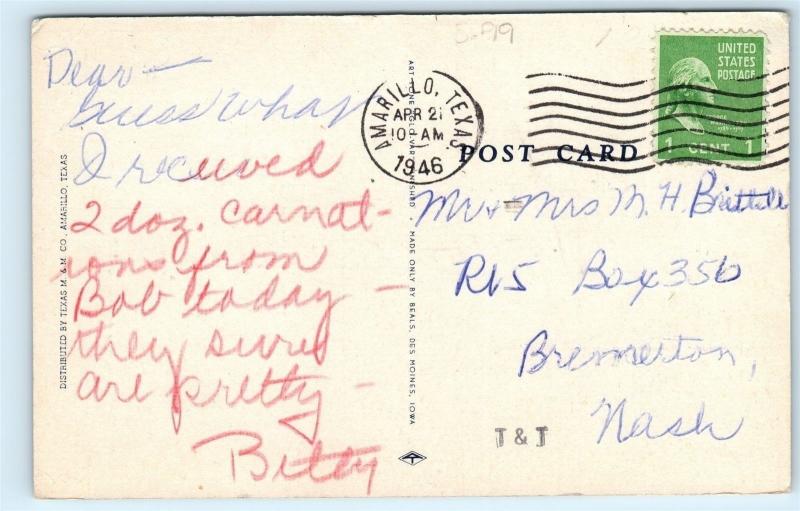 5-99
Dear —
Guess what
I received
2 doz. carnat-
ions from
Bob today —
they sure
are pretty —
Betty
DISTRIBUTED BY TEXAS M. & M. CO., AMARILLO, TEXAS
MADE ONLY BY BEALS, DES MOINES, IOWA
AMARILLO, TEXAS
APR 21
10 AM
1946
POST CARD
UNITED
STATES
POSTAGE
1 CENT 1
Mr + Mrs M. H.
Rt 5 Box 356
Bremerton,
Wash
T & T